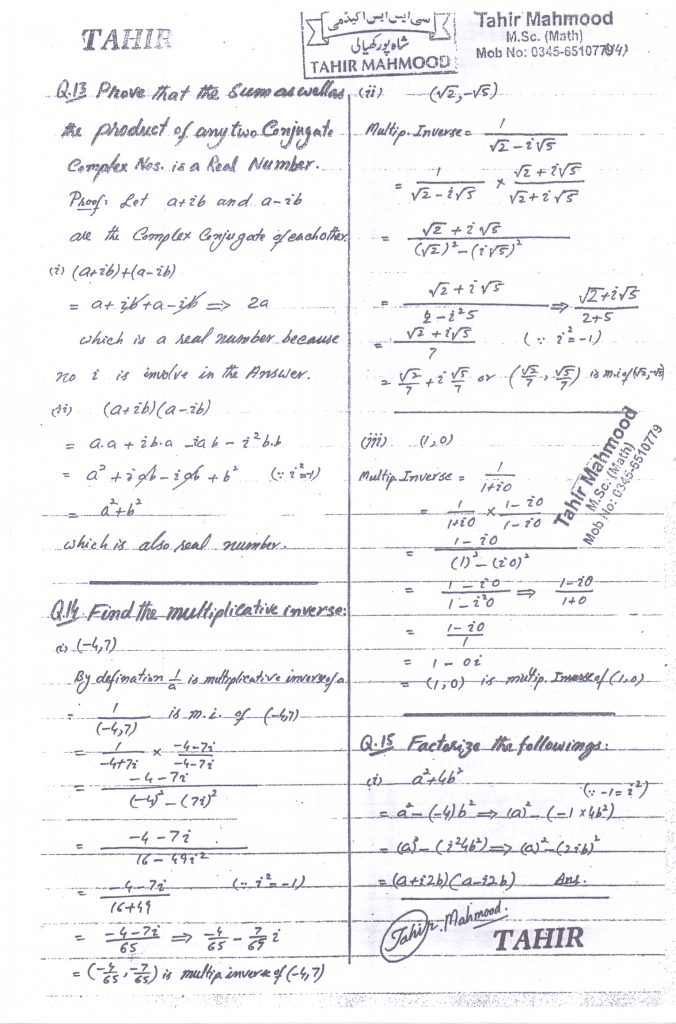 TAHIR
سی ایس ایس اکیڈمی
شاہ پور کھیالی
TAHIR MAHMOOD
Tahir Mahmood
M.Sc. (Math)
Mob No: 0345-6510779
Q.13 Prove that the Sum as well as
the product of any two Conjugate
Complex Nos. is a Real Number.
Proof: Let a+ib and a-ib
are the Complex Conjugate of each other.
(i) (a+ib)+(a-ib)
= a+ib+a-ib ⇒ 2a
which is a real number because
no i is involve in the Answer.
(ii) (a+ib)(a-ib)
= a.a + ib.a - iab - i²b.b
= a² + iab - iab + b² (∵ i²=-1)
= a²+b²
which is also real number.
Q.14 Find the multiplicative inverse:
(i) (-4,7)
By defination 1/a is multiplicative inverse of a
∴ 1/(-4,7) is m.i. of (-4,7)
= 1/(-4+7i) × (-4-7i)/(-4-7i)
= (-4-7i)/((-4)²-(7i)²)
= (-4-7i)/(16-49i²)
= (-4-7i)/(16+49) (∵ i²=-1)
= (-4-7i)/65 ⇒ -4/65 - 7/65 i
= (-4/65, -7/65) is multip. inverse of (-4,7)
(ii) (√2,-√5)
Multip. Inverse = 1/(√2-i√5)
= 1/(√2-i√5) × (√2+i√5)/(√2+i√5)
= (√2+i√5)/((√2)²-(i√5)²)
= (√2+i√5)/(2-i²5) ⇒ (√2+i√5)/(2+5)
= (√2+i√5)/7 (∵ i²=-1)
= √2/7 + i √5/7 or (√2/7, √5/7) is m.i of (√2,-√5)
(iii) (1,0)
Multip. Inverse = 1/(1+i0)
= 1/(1+i0) × (1-i0)/(1-i0)
= (1-i0)/((1)²-(i0)²)
= (1-i0)/(1-i²0) ⇒ (1-i0)/(1+0)
= (1-i0)/1
= 1-0i
= (1,0) is multip. Inverse of (1,0)
Tahir Mahmood
M.Sc. (Math)
Mob No: 0345-6510779
Q.15 Factorize the followings:
(i) a²+4b²
(∵ -1=i²)
= a²-(-4)b² ⇒ (a)²-(-1×4b²)
= (a)²-(i²4b²) ⇒ (a)²-(2ib)²
= (a+i2b)(a-i2b) Ans.
Tahir Mahmood.
TAHIR